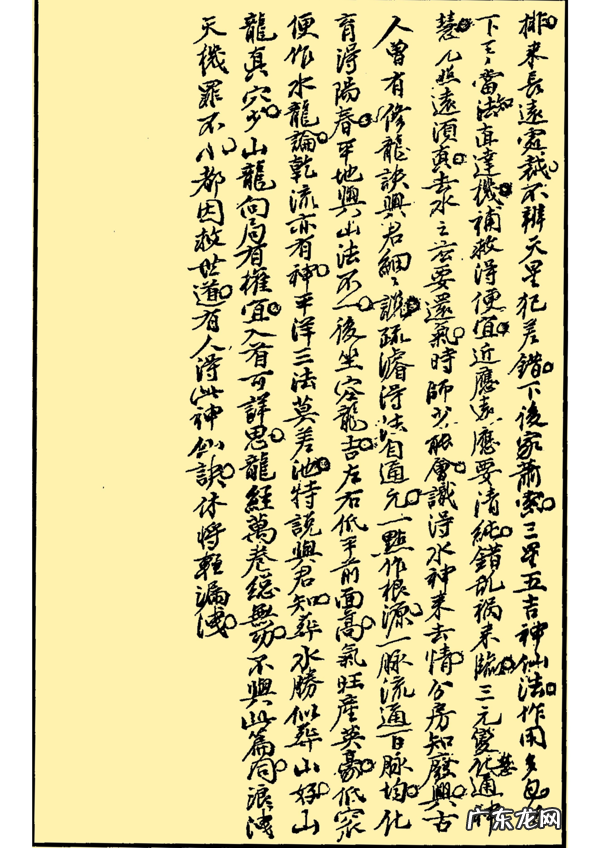 排来长遠定裁不辨天星犯差錯下後家蕭索三星五吉神仙法作用多包
下三當知法直達機補救得便宜近應遠應要清純錯乱祸来臨三元變化通神
慧几照遠須真去水之玄要還氣時師少能會識得水神来去情公房知廢興古
人曾有修龍訣與君細三說疏濬得法自通元一點作根源一脉流通百脉均化
育得陽春平地與山法不一後坐容龍吉左右低平前面高氣旺産英豪低窊
便作水龍論乾流亦有神平洋三法莫差池特説與君知葬水勝似葬山好山
龍真穴少山龍向局有權宜入首可詳思龍經萬卷總無功不與此篇同浪洩
天機罪不小都因救世道有人得此神仙訣休将輕漏洩
广东龙网